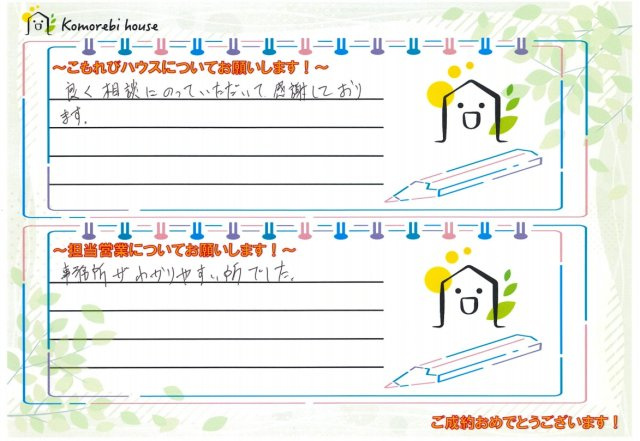 Komorebi house
～こもれびハウスについてお願いします！～
良く相談にのっていただいて感謝しており
ます。
～担当営業についてお願いします！～
事務所がわかりやすい所でした。
ご成約おめでとうございます！